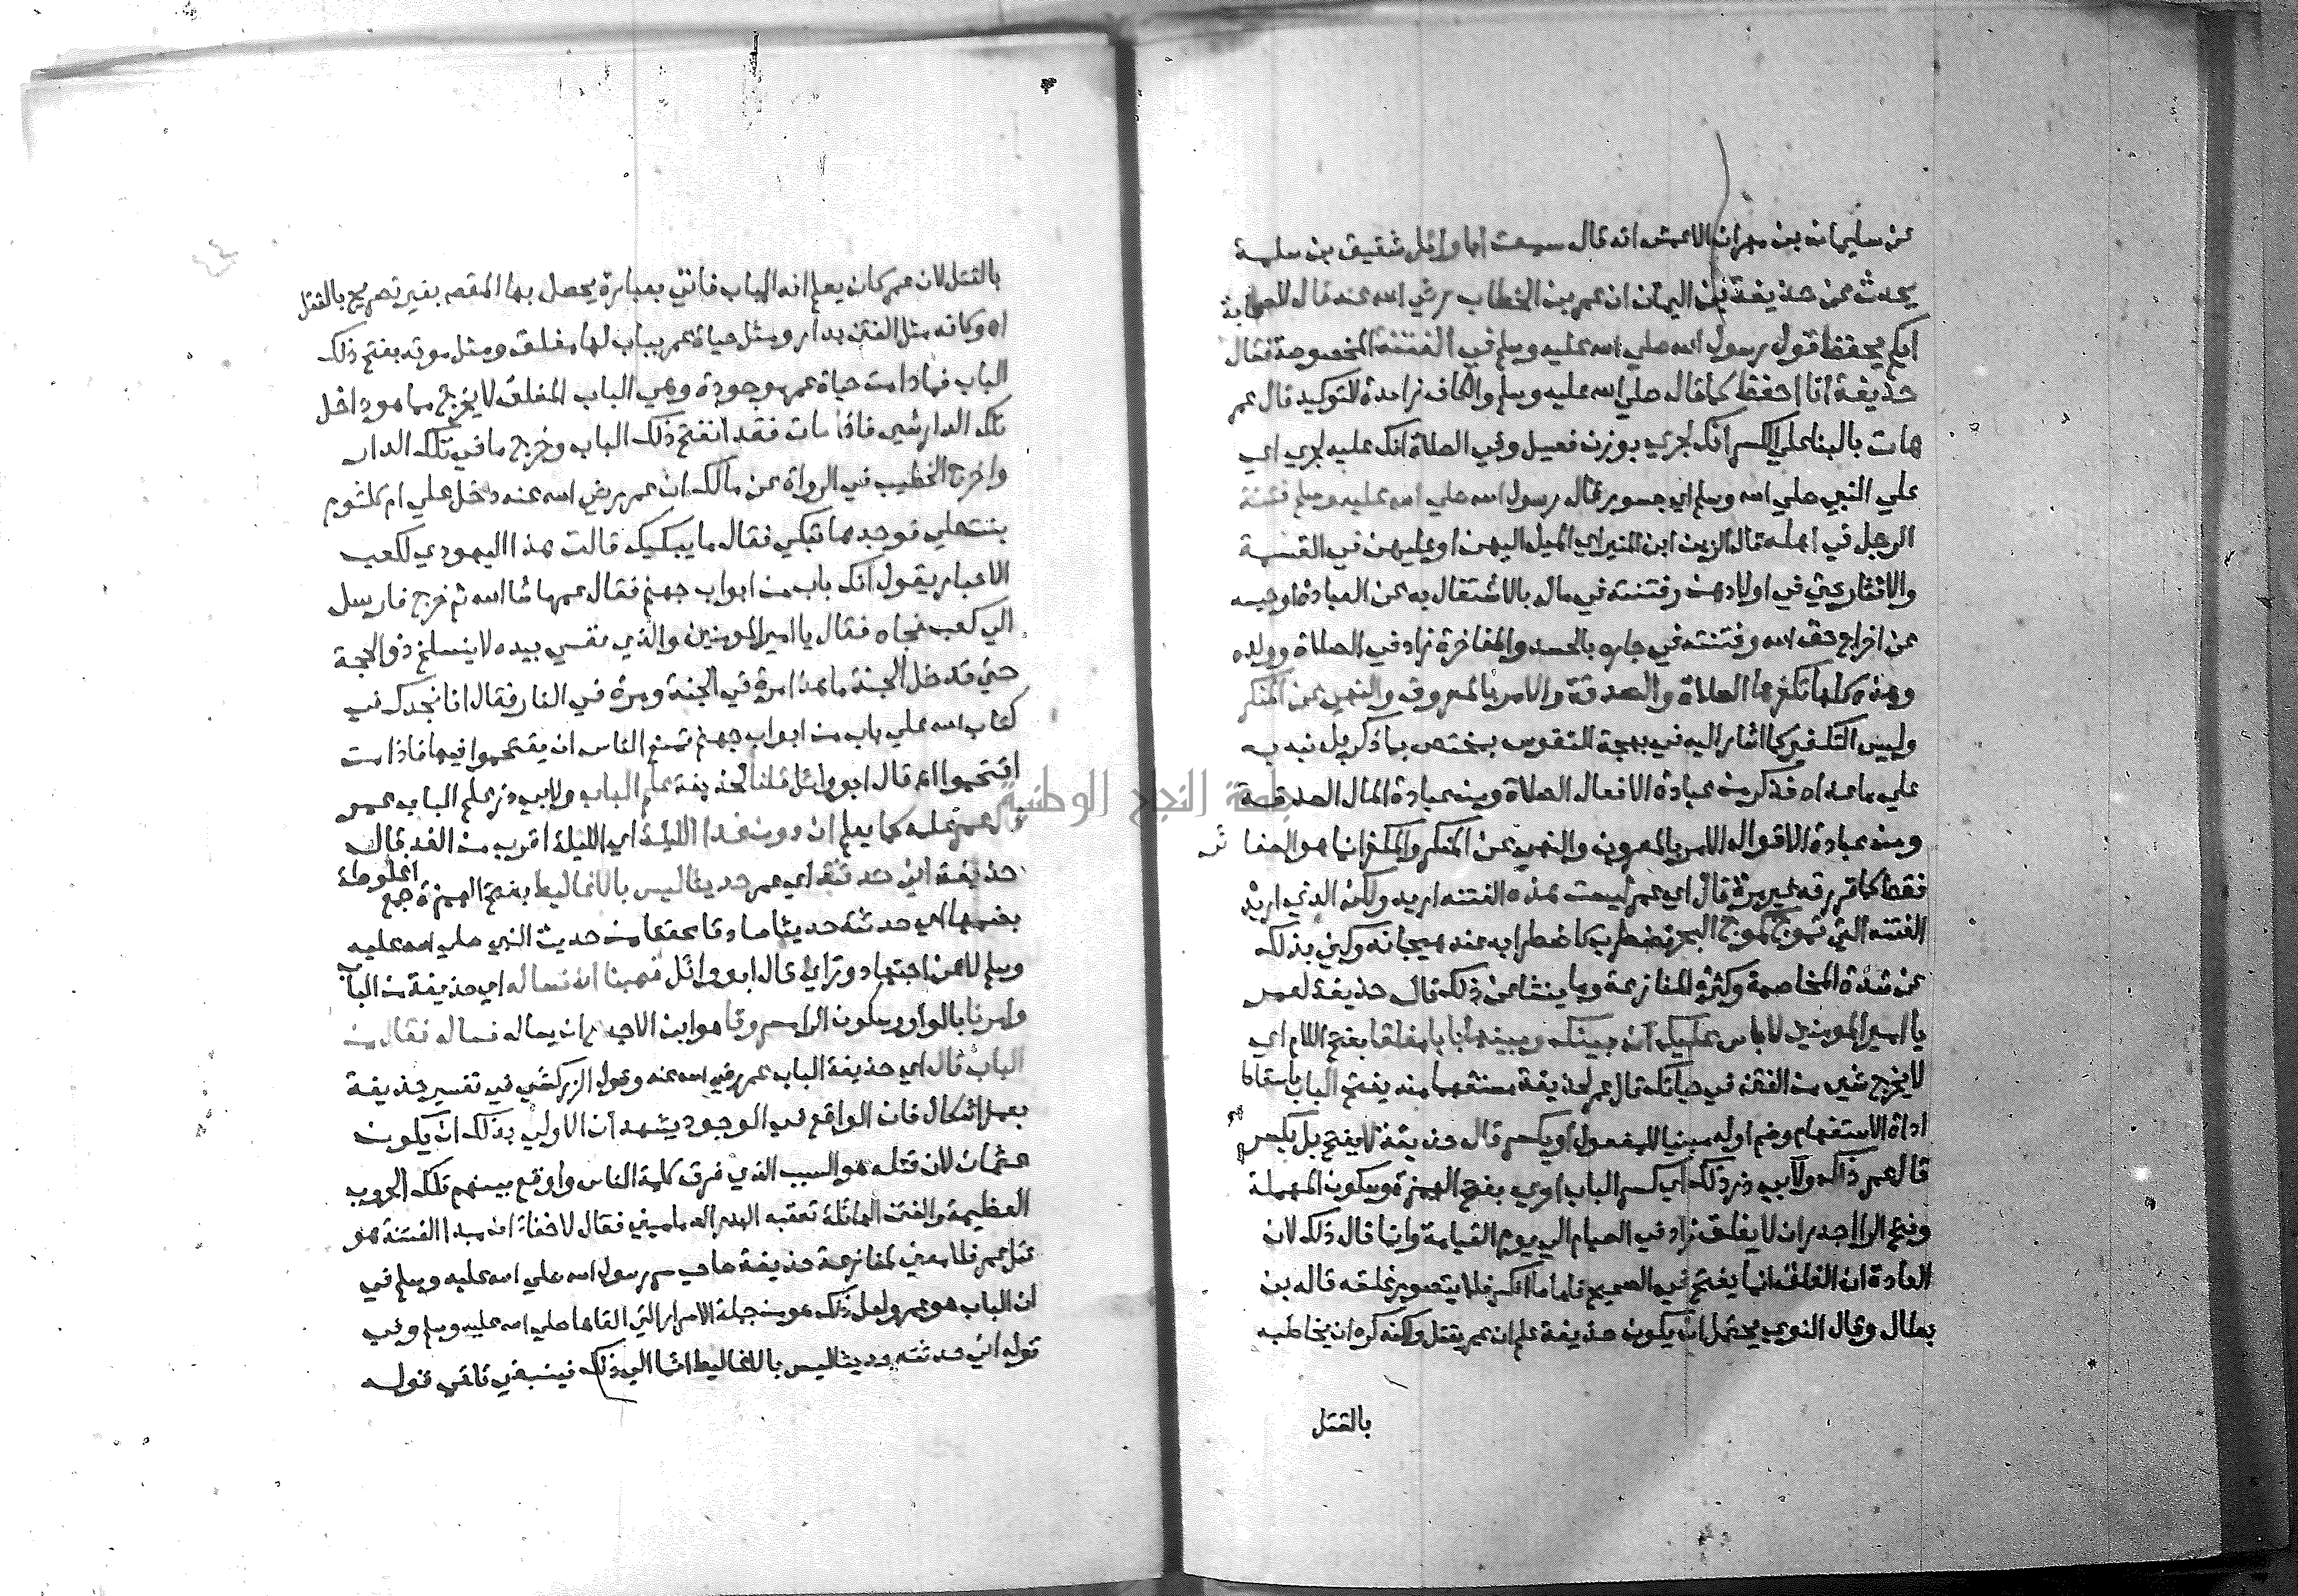 عن سليمان بن مهران الاعمش انه قال سمعت ابا وائل شقيق بن سلمة
يحدث عن حذيفة بن اليمان ان عمر بن الخطاب رضي الله عنه قال للصحابة
ايكم يحفظ قول رسول الله صلي الله عليه وسلم في الفتنة المخصوصة فقال
حذيفة انا احفظ كما قال صلي الله عليه وسلم والكاف زائدة للتوكيد قال عمر
هات بالبنا علي الكسر انك لجري بوزن فعيل وفي الصلاة انك عليه لجري اي
علي النبي صلي الله وسلم اي جسور قال رسول الله صلي الله عليه وسلم فتنة
الرجل في اهله قال الزين ابن المنير اي الميل اليهن او عليهن في القسمة
والايثار حتي في اولادهن وفتنته في ماله بالاشتغال به عن العبادة او حبسه
عن اخراج حق الله وفتنته في جاره بالحسد والمفاخرة زاد في الصلاة وولده
وهذه كلها تكفرها الصلاة والصدقة والامر بالمعروف والنهي عن المنكر
وليس التكفير كما اشار اليه في بهجة النفوس بمختص بما ذكر بل نبه به
علي ما عداه فذكر من عبادة الافعال الصلاة ومن عبادة المال الصدقة
ومن عبادة الاقوال الامر بالمعروف والنهي عن المنكر والمكفر انما هو الصغا ئر
فقط كما قررته غير مرة قال اي عمر ليست هذه الفتنه اريد ولكن الذي اريد
الفتنه التي تموج كموج البحر تضطرب كاضطرابه عند هيجانه وكني بذلك
عن شدة المخاصمة وكثرة المنازعة وما ينشا عن ذلك قال حذيفة لعمر
يا امير المومنين لا باس عليك ان بينك وبينها بابا مغلقا بفتح اللام اي
لا يخرج شي من الفتنه في حياتك قال عمر لحذيفة مستفهما منه يفتح الباب باسقاط
اداة الاستفهام وضم اوله مبنيا للمفعول او يكسر قال حذيفة لا يفتح بل يكسر
قال عمر ذاك ولابي ذر ذلك اي كسر الباب احري بفتح الهمزة وسكون المهملة
وفتح الرا اجدر ان لا يغلق زاد في الصيام الي يوم القيامة وانما قال ذلك لان
العادة ان الغلق انما يفتح في الصحيح فاما ما انكسر فلا يتصور غلقه قاله بن
بطال وقال النووي يحتمل ان يكون حذيفة علم ان عمر يقتل ولكنه كره ان يخاطبه
بالقتل
بالقتل لان عمر كان يعلم انه الباب فاتي بعبارة يحصل بها المقصد بغير تصريح بالقتل
اه وكانه مثل الفتن بدار ومثل حياة عمر بباب لها مغلق ومثل موته بفتح ذلك
الباب فما دامت حياة عمر موجودة وهي الباب المغلق لا يخرج مما هو داخل
تلك الدار شي فاذا مات فقد انفتح ذلك الباب وخرج ما في تلك الدار
واخرج الخطيب في الرواة عن مالك ان عمر رضي الله عنه دخل علي ام كلثوم
بنت علي فوجدها تبكي فقال ما يبكيك قالت هذا اليهودي لكعب
الاحبار يقول انك باب من ابواب جهنم فقال عمر ما شا الله ثم خرج فارسل
الي كعب فجاه فقال يا امير المومنين والذي نفسي بيده لا ينسلخ ذو الحجة
حتي تدخل الجنة ما هذا مرة في الجنة ومرة في النار فقال انا نجدك في
كتاب الله علي باب من ابواب جهنم تمنع الناس ان يقتحموا فيها فاذا مت
اقتحموا اه قال ابو وائل قلنا لحذيفة علم الباب ولابي ذر علم الباب عمر
قال عمر علمه كما يعلم ان دون غدا الليلة اي الليلة اقرب من الغد قال
حذيفة اني حدثته اي عمر حديثا ليس بالاغاليط بفتح الهمزة جمع اغلوطة
بضمها اي حدثته حديثا صادقا محققا من حديث النبي صلي الله عليه
وسلم لا عن اجتهاد وراي قال ابو وائل فهبنا ان نساله اي حذيفة من الباب
وامرنا بالواو وسكون الرا مسروقا هو ابن الاجدع ان يساله فساله فقال من
الباب قال اي حذيفة الباب عمر رضي الله عنه وقول الزركشي في تفسير حذيفة
بعمر اشكال فان الواقع في الوجود يشهد ان الاولي بذلك ان يكون
عثمان لان قتله هو السبب الذي فرق كلمة الناس واوقع بينهم تلك الحروب
العظيمة والفتن الهائلة تعقبه البدر الدماميني فقال لا خفاء ان مبدا الفتنة هو
قتل عمر فلا معني لمنازعة حذيفة صاحب سر رسول الله صلي الله عليه وسلم في
ان الباب هو عمر ولعل ذلك هو من جملة الاسرار التي القاها صلي الله عليه وسلم وفي
قوله اني حدثته حديثا ليس بالاغاليط ايما الي ذلك فينبغي تلقي قوله